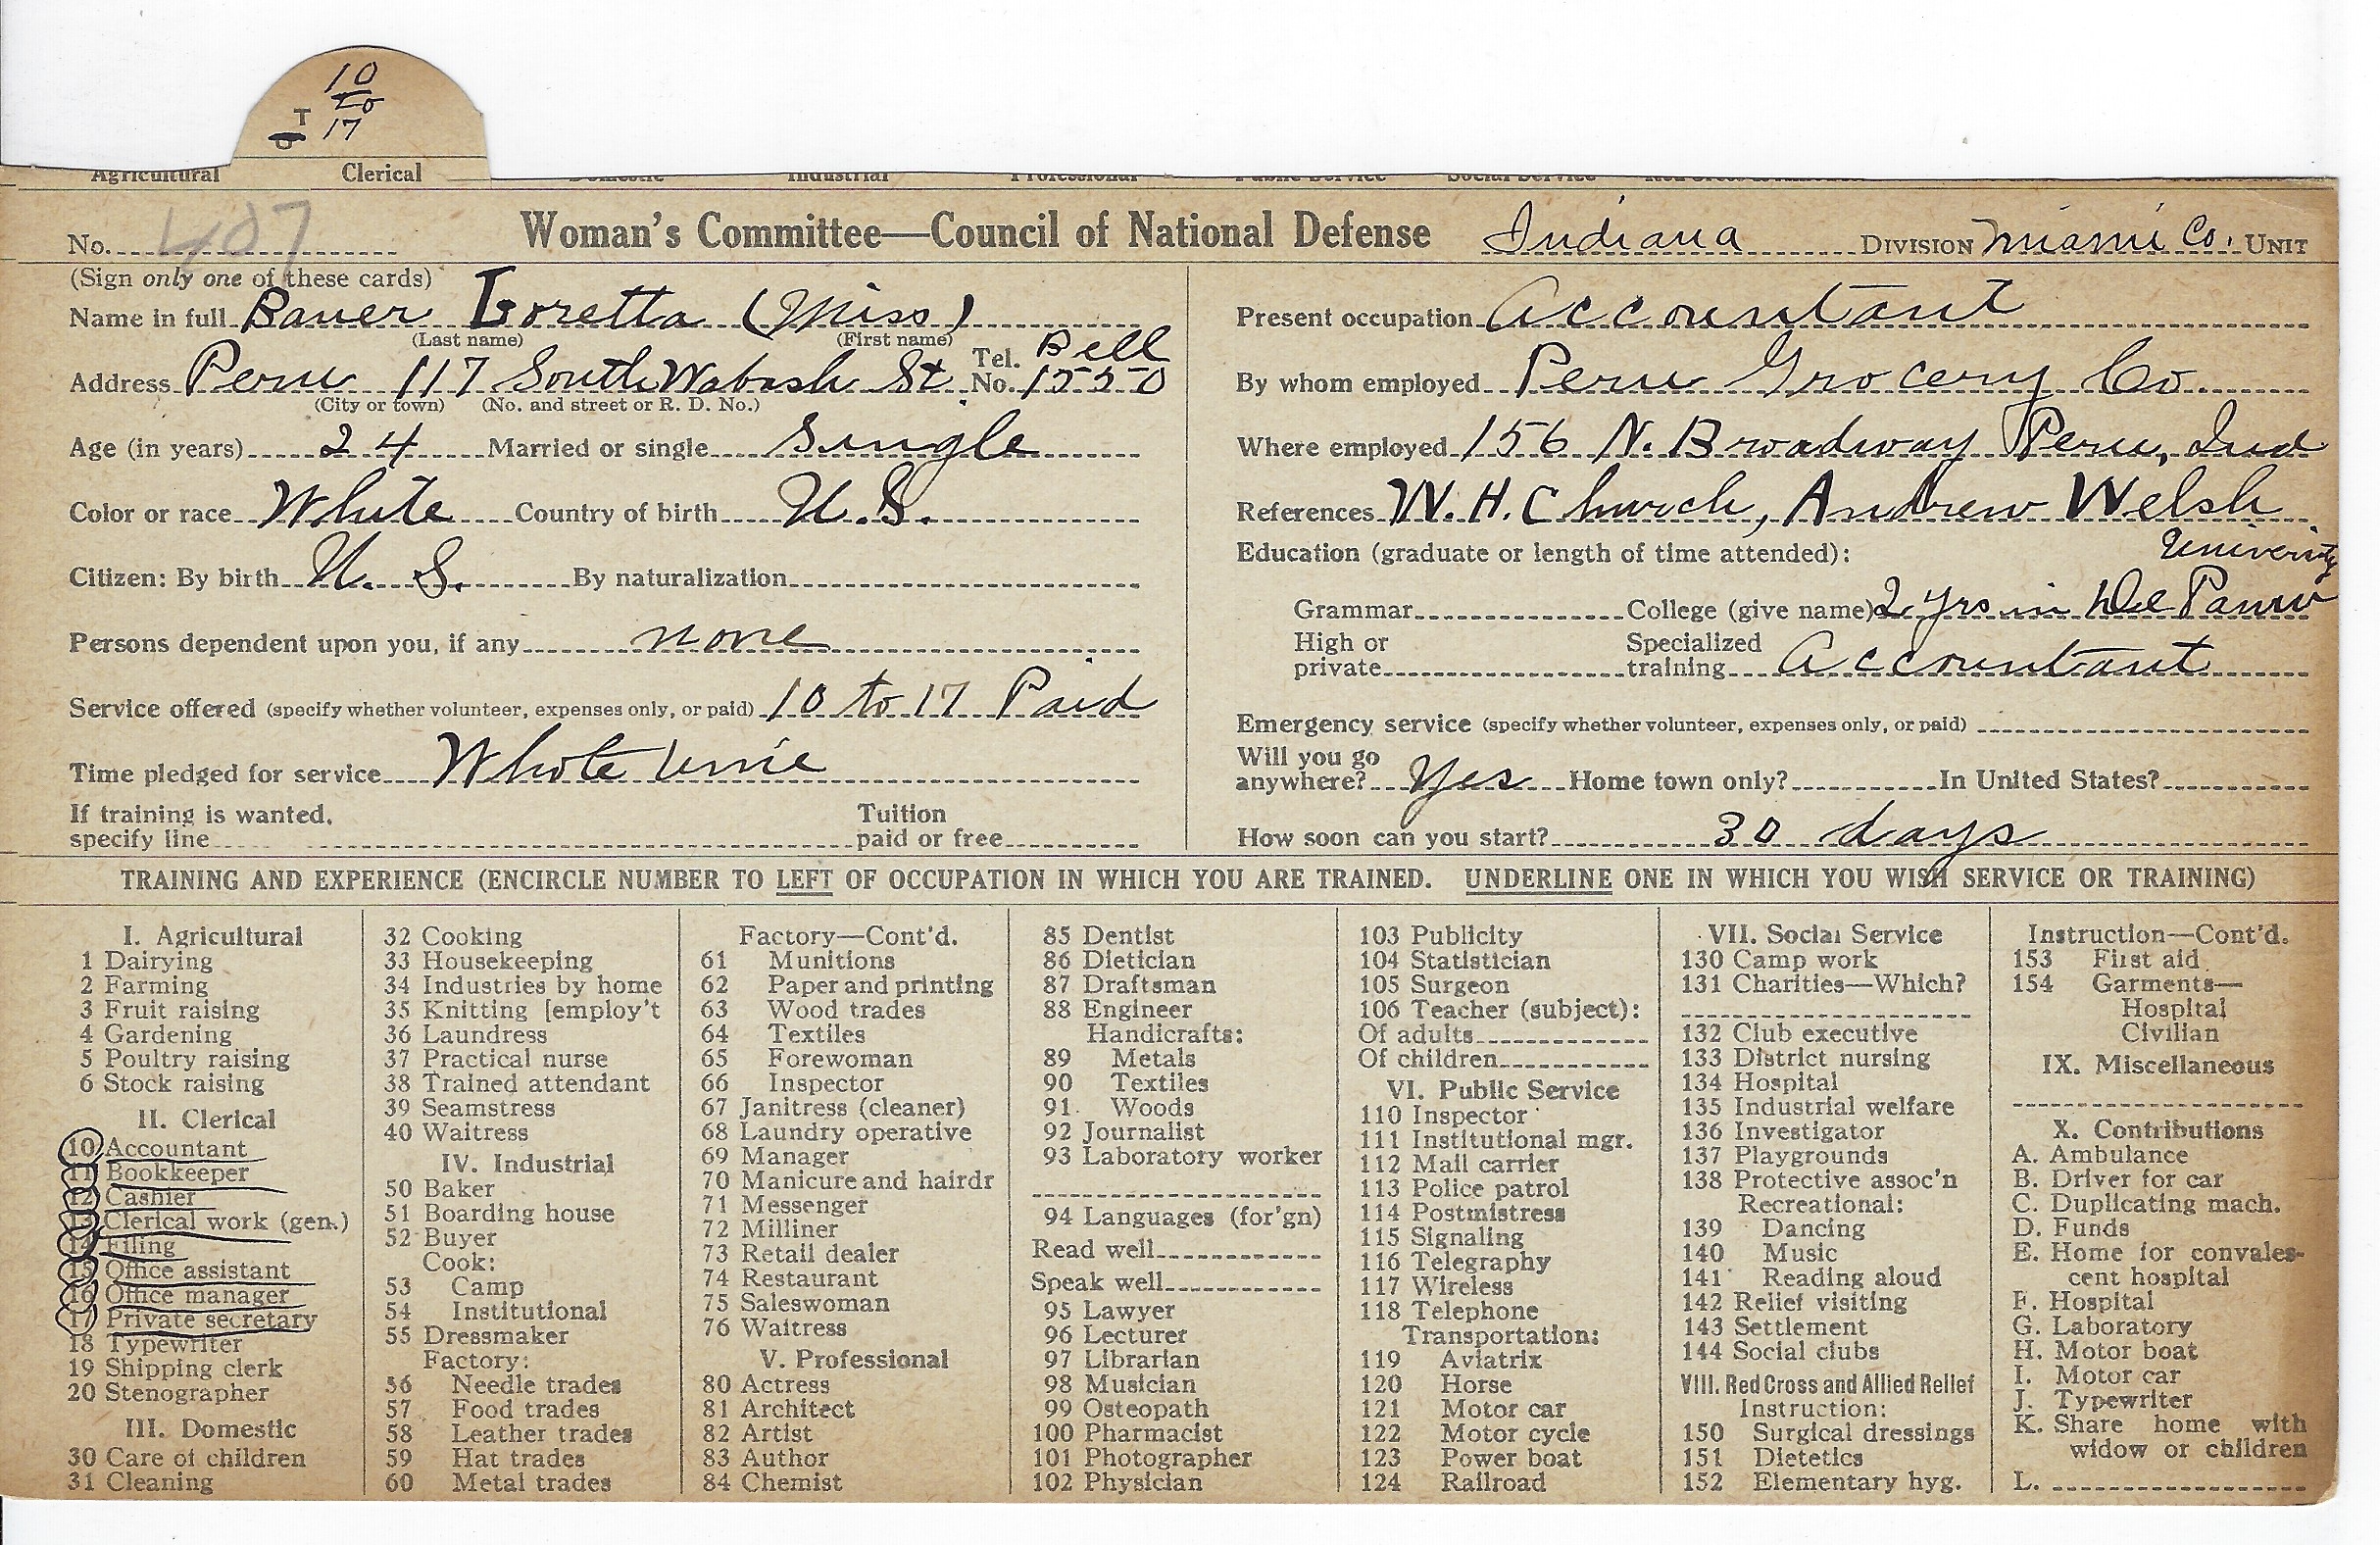 10
to
T 17
Agricultural Clerical Domestic Industrial Professional Public Service Social Service
No. 407 Woman's Committee—Council of National Defense Indiana DIVISION Miami Co. UNIT
(Sign only one of these cards)
Name in full Bauer Loretta (Miss)
(Last name) (First name)
Address Peru 117 South Wabash St Tel. No. Bell 1550
(City or town) (No. and street or R. D. No.)
Age (in years) 24 Married or single Single
Color or race White Country of birth U.S.
Citizen: By birth U. S. By naturalization
Persons dependent upon you, if any none
Service offered (specify whether volunteer, expenses only, or paid) 10 to 17 Paid
Time pledged for service Whole time
If training is wanted, Tuition
specify line paid or free
Present occupation Accountant
By whom employed Peru Grocery Co
Where employed 156 N. Broadway Peru, Ind
References W. H. Church, Andrew Welsh
Education (graduate or length of time attended): University
Grammar College (give name) 2 yrs in De Pauw
High or Specialized
private training Accountant
Emergency service (specify whether volunteer, expenses only, or paid)
Will you go
anywhere? Yes Home town only? In United States?
How soon can you start? 30 days
TRAINING AND EXPERIENCE (ENCIRCLE NUMBER TO LEFT OF OCCUPATION IN WHICH YOU ARE TRAINED. UNDERLINE ONE IN WHICH YOU WISH SERVICE OR TRAINING)
I. Agricultural
1 Dairying
2 Farming
3 Fruit raising
4 Gardening
5 Poultry raising
6 Stock raising
II. Clerical
10 Accountant
11 Bookkeeper
12 Cashier
13 Clerical work (gen.)
14 Filing
15 Office assistant
16 Office manager
17 Private secretary
18 Typewriter
19 Shipping clerk
20 Stenographer
III. Domestic
30 Care of children
31 Cleaning
32 Cooking
33 Housekeeping
34 Industries by home
35 Knitting [employ't
36 Laundress
37 Practical nurse
38 Trained attendant
39 Seamstress
40 Waitress
IV. Industrial
50 Baker
51 Boarding house
52 Buyer
Cook:
53 Camp
54 Institutional
55 Dressmaker
Factory:
56 Needle trades
57 Food trades
58 Leather trades
59 Hat trades
60 Metal trades
Factory—Cont'd.
61 Munitions
62 Paper and printing
63 Wood trades
64 Textiles
65 Forewoman
66 Inspector
67 Janitress (cleaner)
68 Laundry operative
69 Manager
70 Manicure and hairdr
71 Messenger
72 Milliner
73 Retail dealer
74 Restaurant
75 Saleswoman
76 Waitress
V. Professional
80 Actress
81 Architect
82 Artist
83 Author
84 Chemist
85 Dentist
86 Dietician
87 Draftsman
88 Engineer
Handicrafts:
89 Metals
90 Textiles
91 Woods
92 Journalist
93 Laboratory worker
94 Languages (for'gn)
Read well
Speak well
95 Lawyer
96 Lecturer
97 Librarian
98 Musician
99 Osteopath
100 Pharmacist
101 Photographer
102 Physician
103 Publicity
104 Statistician
105 Surgeon
106 Teacher (subject):
Of adults
Of children
VI. Public Service
110 Inspector
111 Institutional mgr.
112 Mail carrier
113 Police patrol
114 Postmistress
115 Signaling
116 Telegraphy
117 Wireless
118 Telephone
Transportation:
119 Aviatrix
120 Horse
121 Motor car
122 Motor cycle
123 Power boat
124 Railroad
VII. Social Service
130 Camp work
131 Charities—Which?
132 Club executive
133 District nursing
134 Hospital
135 Industrial welfare
136 Investigator
137 Playgrounds
138 Protective assoc'n
Recreational:
139 Dancing
140 Music
141 Reading aloud
142 Relief visiting
143 Settlement
144 Social clubs
VIII. Red Cross and Allied Relief
Instruction:
150 Surgical dressings
151 Dietetics
152 Elementary hyg.
Instruction—Cont'd.
153 First aid
154 Garments—
Hospital
Civilian
IX. Miscellaneous
X. Contributions
A. Ambulance
B. Driver for car
C. Duplicating mach.
D. Funds
E. Home for convales-
cent hospital
F. Hospital
G. Laboratory
H. Motor boat
I. Motor car
J. Typewriter
K. Share home with
widow or children
L.